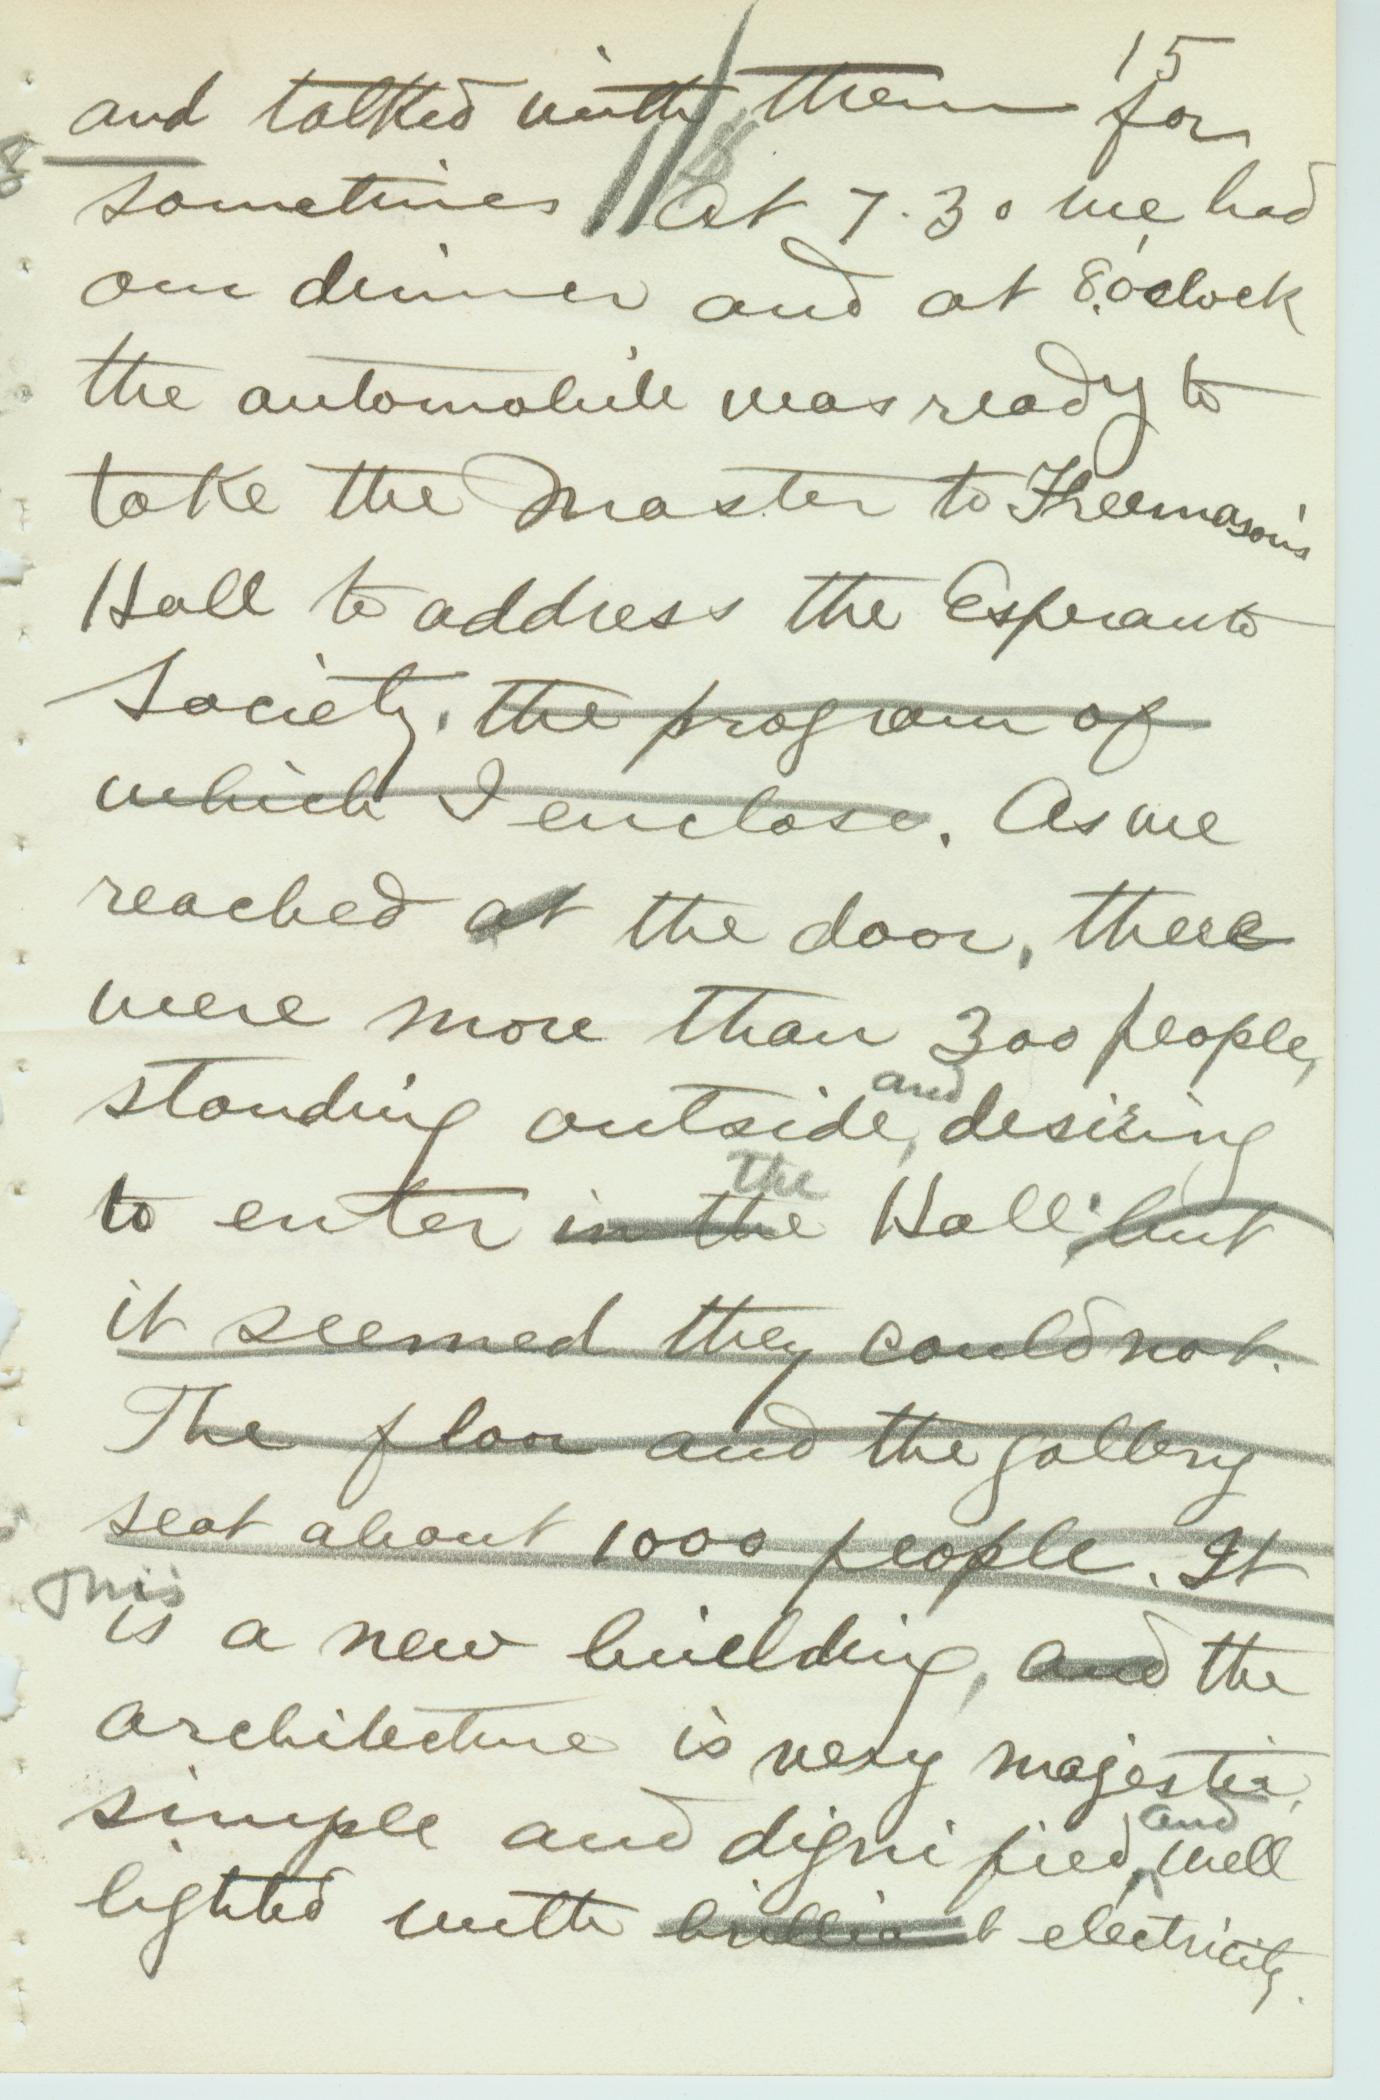 15
and talked with them for
sometimes At 7.30 we had
our dinner and at 8,o'clock
the automobile was ready to
take the Master to Freemason's
Hall to address the Esperanto
Society. the program of
which I enclose. As we
reached at the door, there
were more than 300 people,
standing outside, and desiring
the
to enter in the Hall but
it seemed they could not.
The floor and the gallery
seat about 1000 people. It
This
is a new building, and the
architecture is very majestic,
simple and dignified, and well
lighted with brilliant electricity.